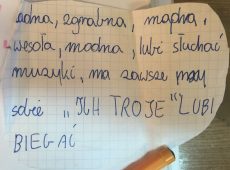 ładna, zgrabna, mądra,
wesoła, modna, lubi słuchać
muzyki, ma zawsze przy
sobie „ICH TROJE" LUBI
BIEGAĆ